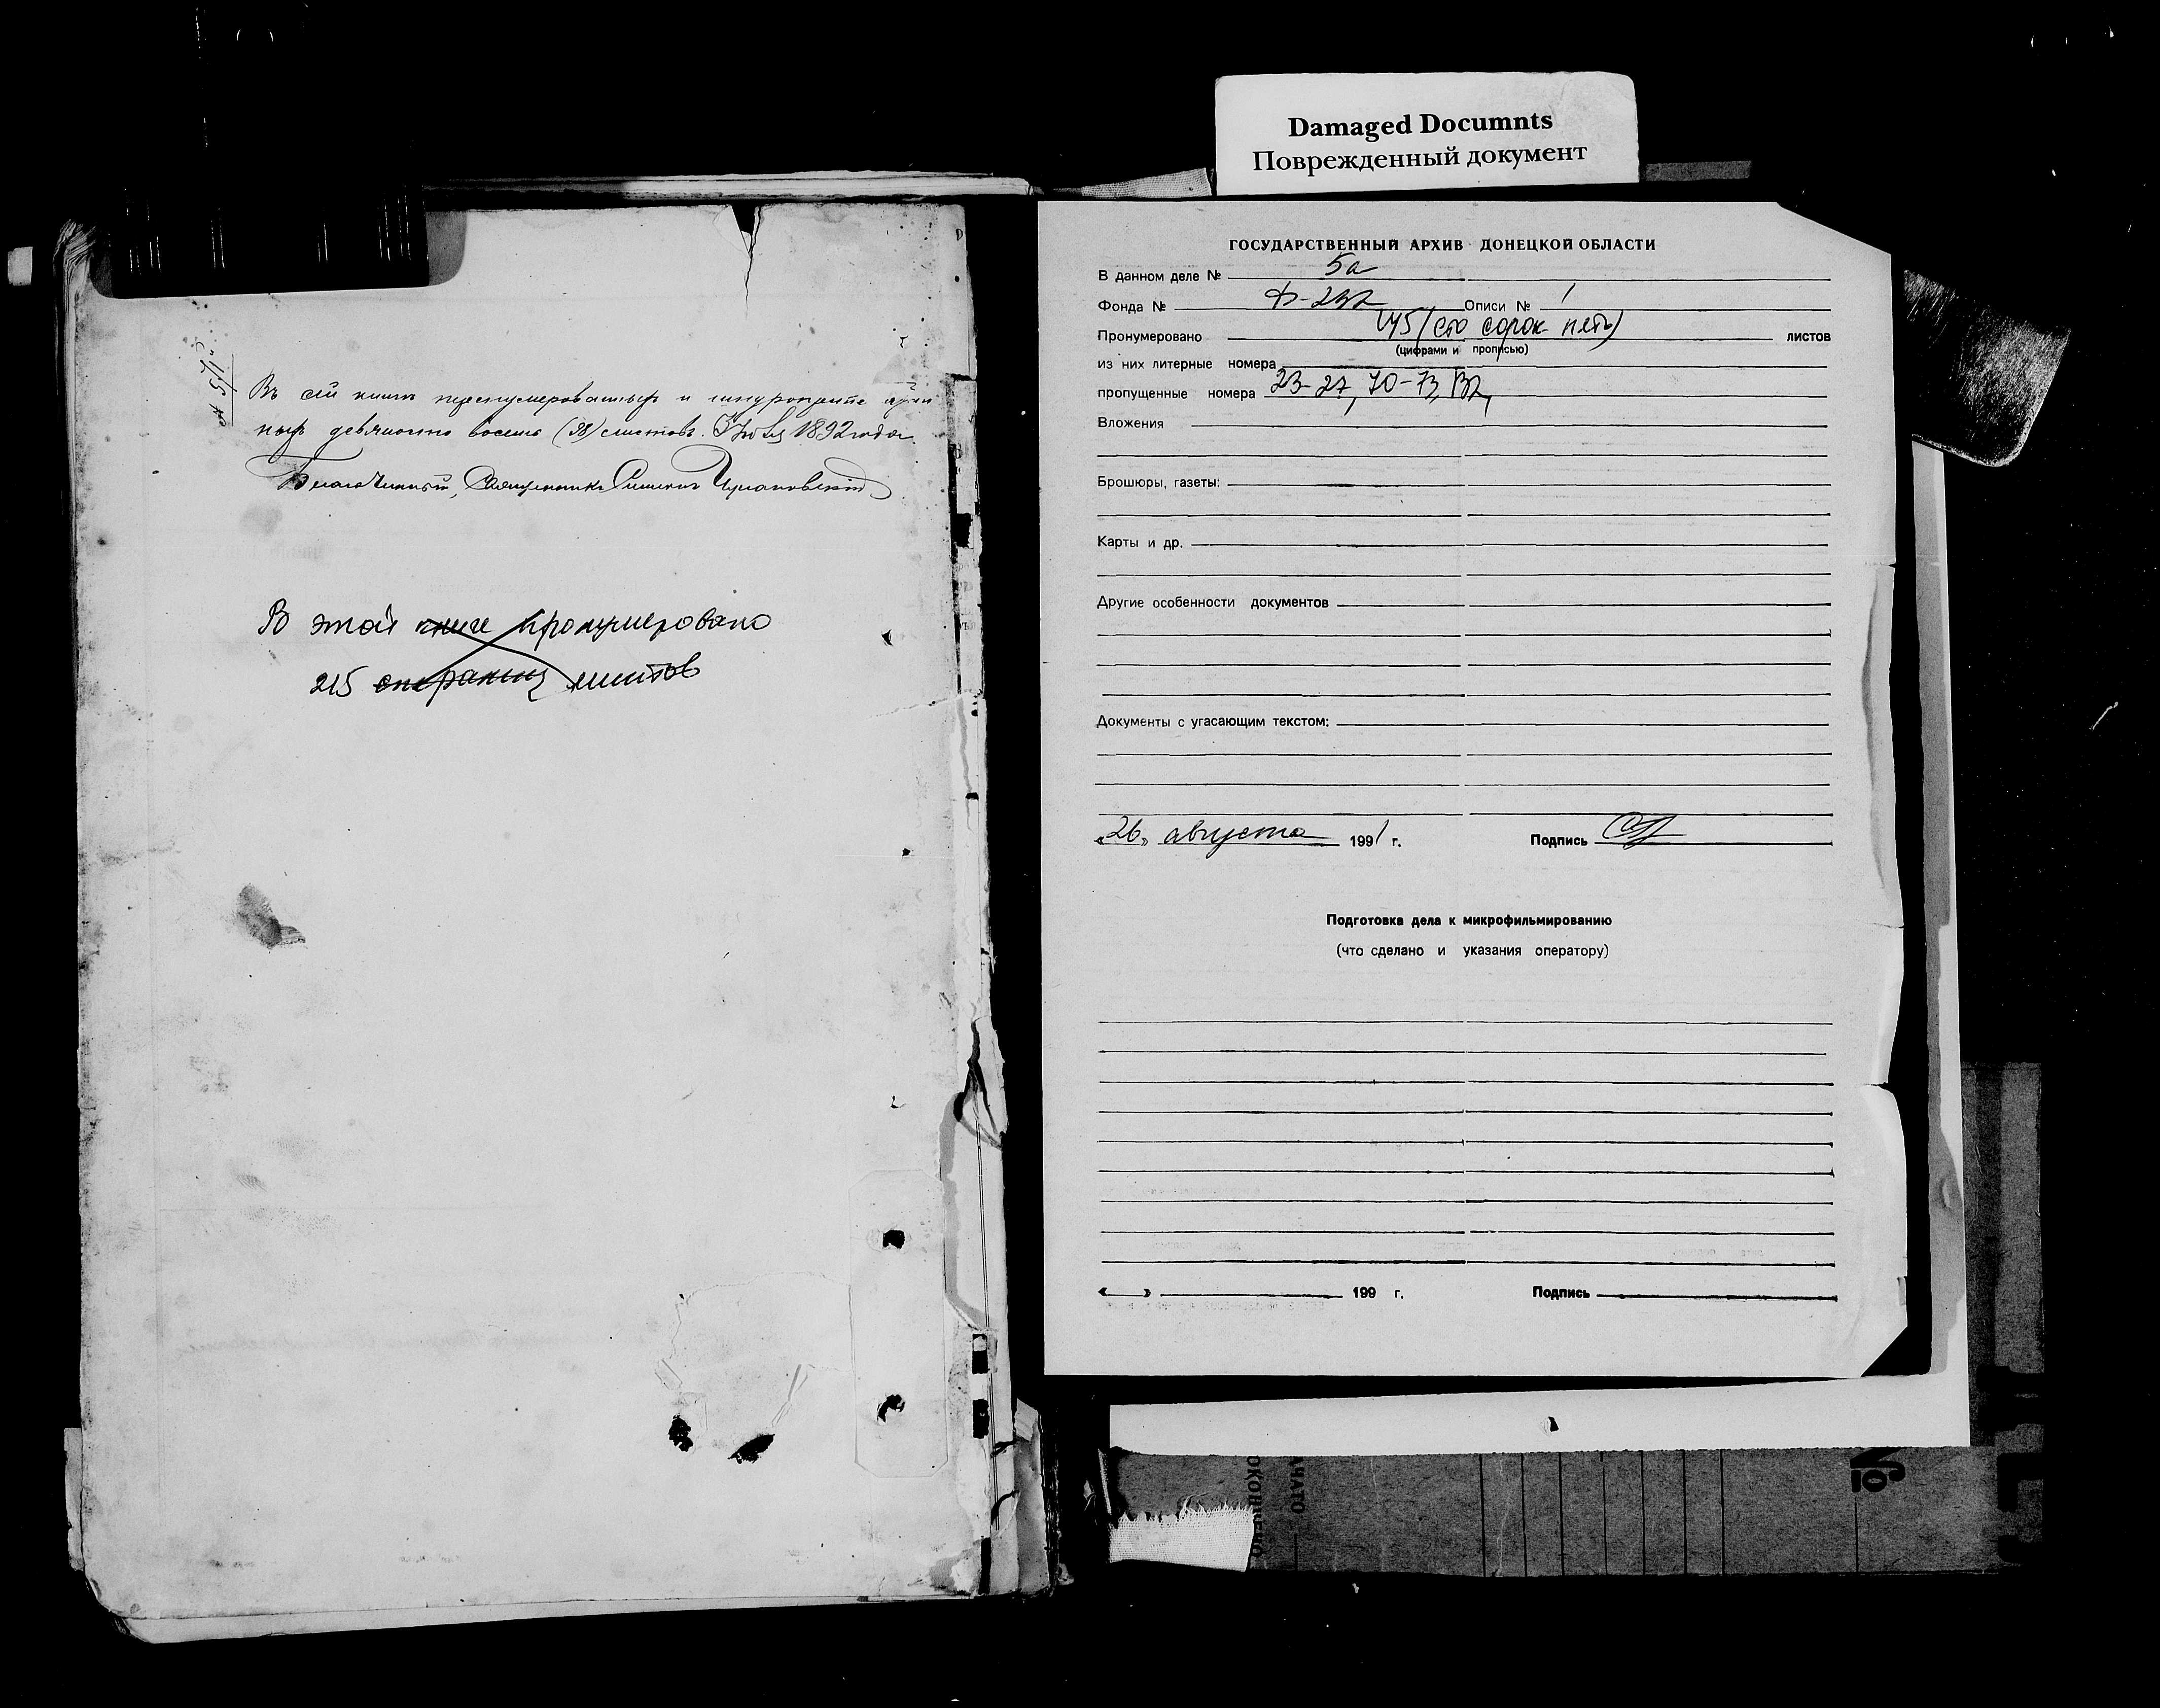 Damaged Documnts
Поврежденный документ
Въ сей книгѣ пронумерованныхъ и
девяносто восемь (98) листовъ. 1892 года
Благочинный, Священникъ
В этой книге пронумеровано
215 страниц листов
ГОСУДАРСТВЕННЫЙ АРХИВ ДОНЕЦКОЙ ОБЛАСТИ
В данном деле № 5а
Фонда № Описи № 1
Пронумеровано 145 (сто сорок пять) листов
(цифрами и прописью)
из них литерные номера
пропущенные номера 23-27, 70-73, 132,
Вложения
Брошюры, газеты:
Карты и др.
Другие особенности документов
Документы с угасающим текстом:
«26» августа 1991 г. Подпись
Подготовка дела к микрофильмированию
(что сделано и указания оператору)
« » 199 г. Подпись